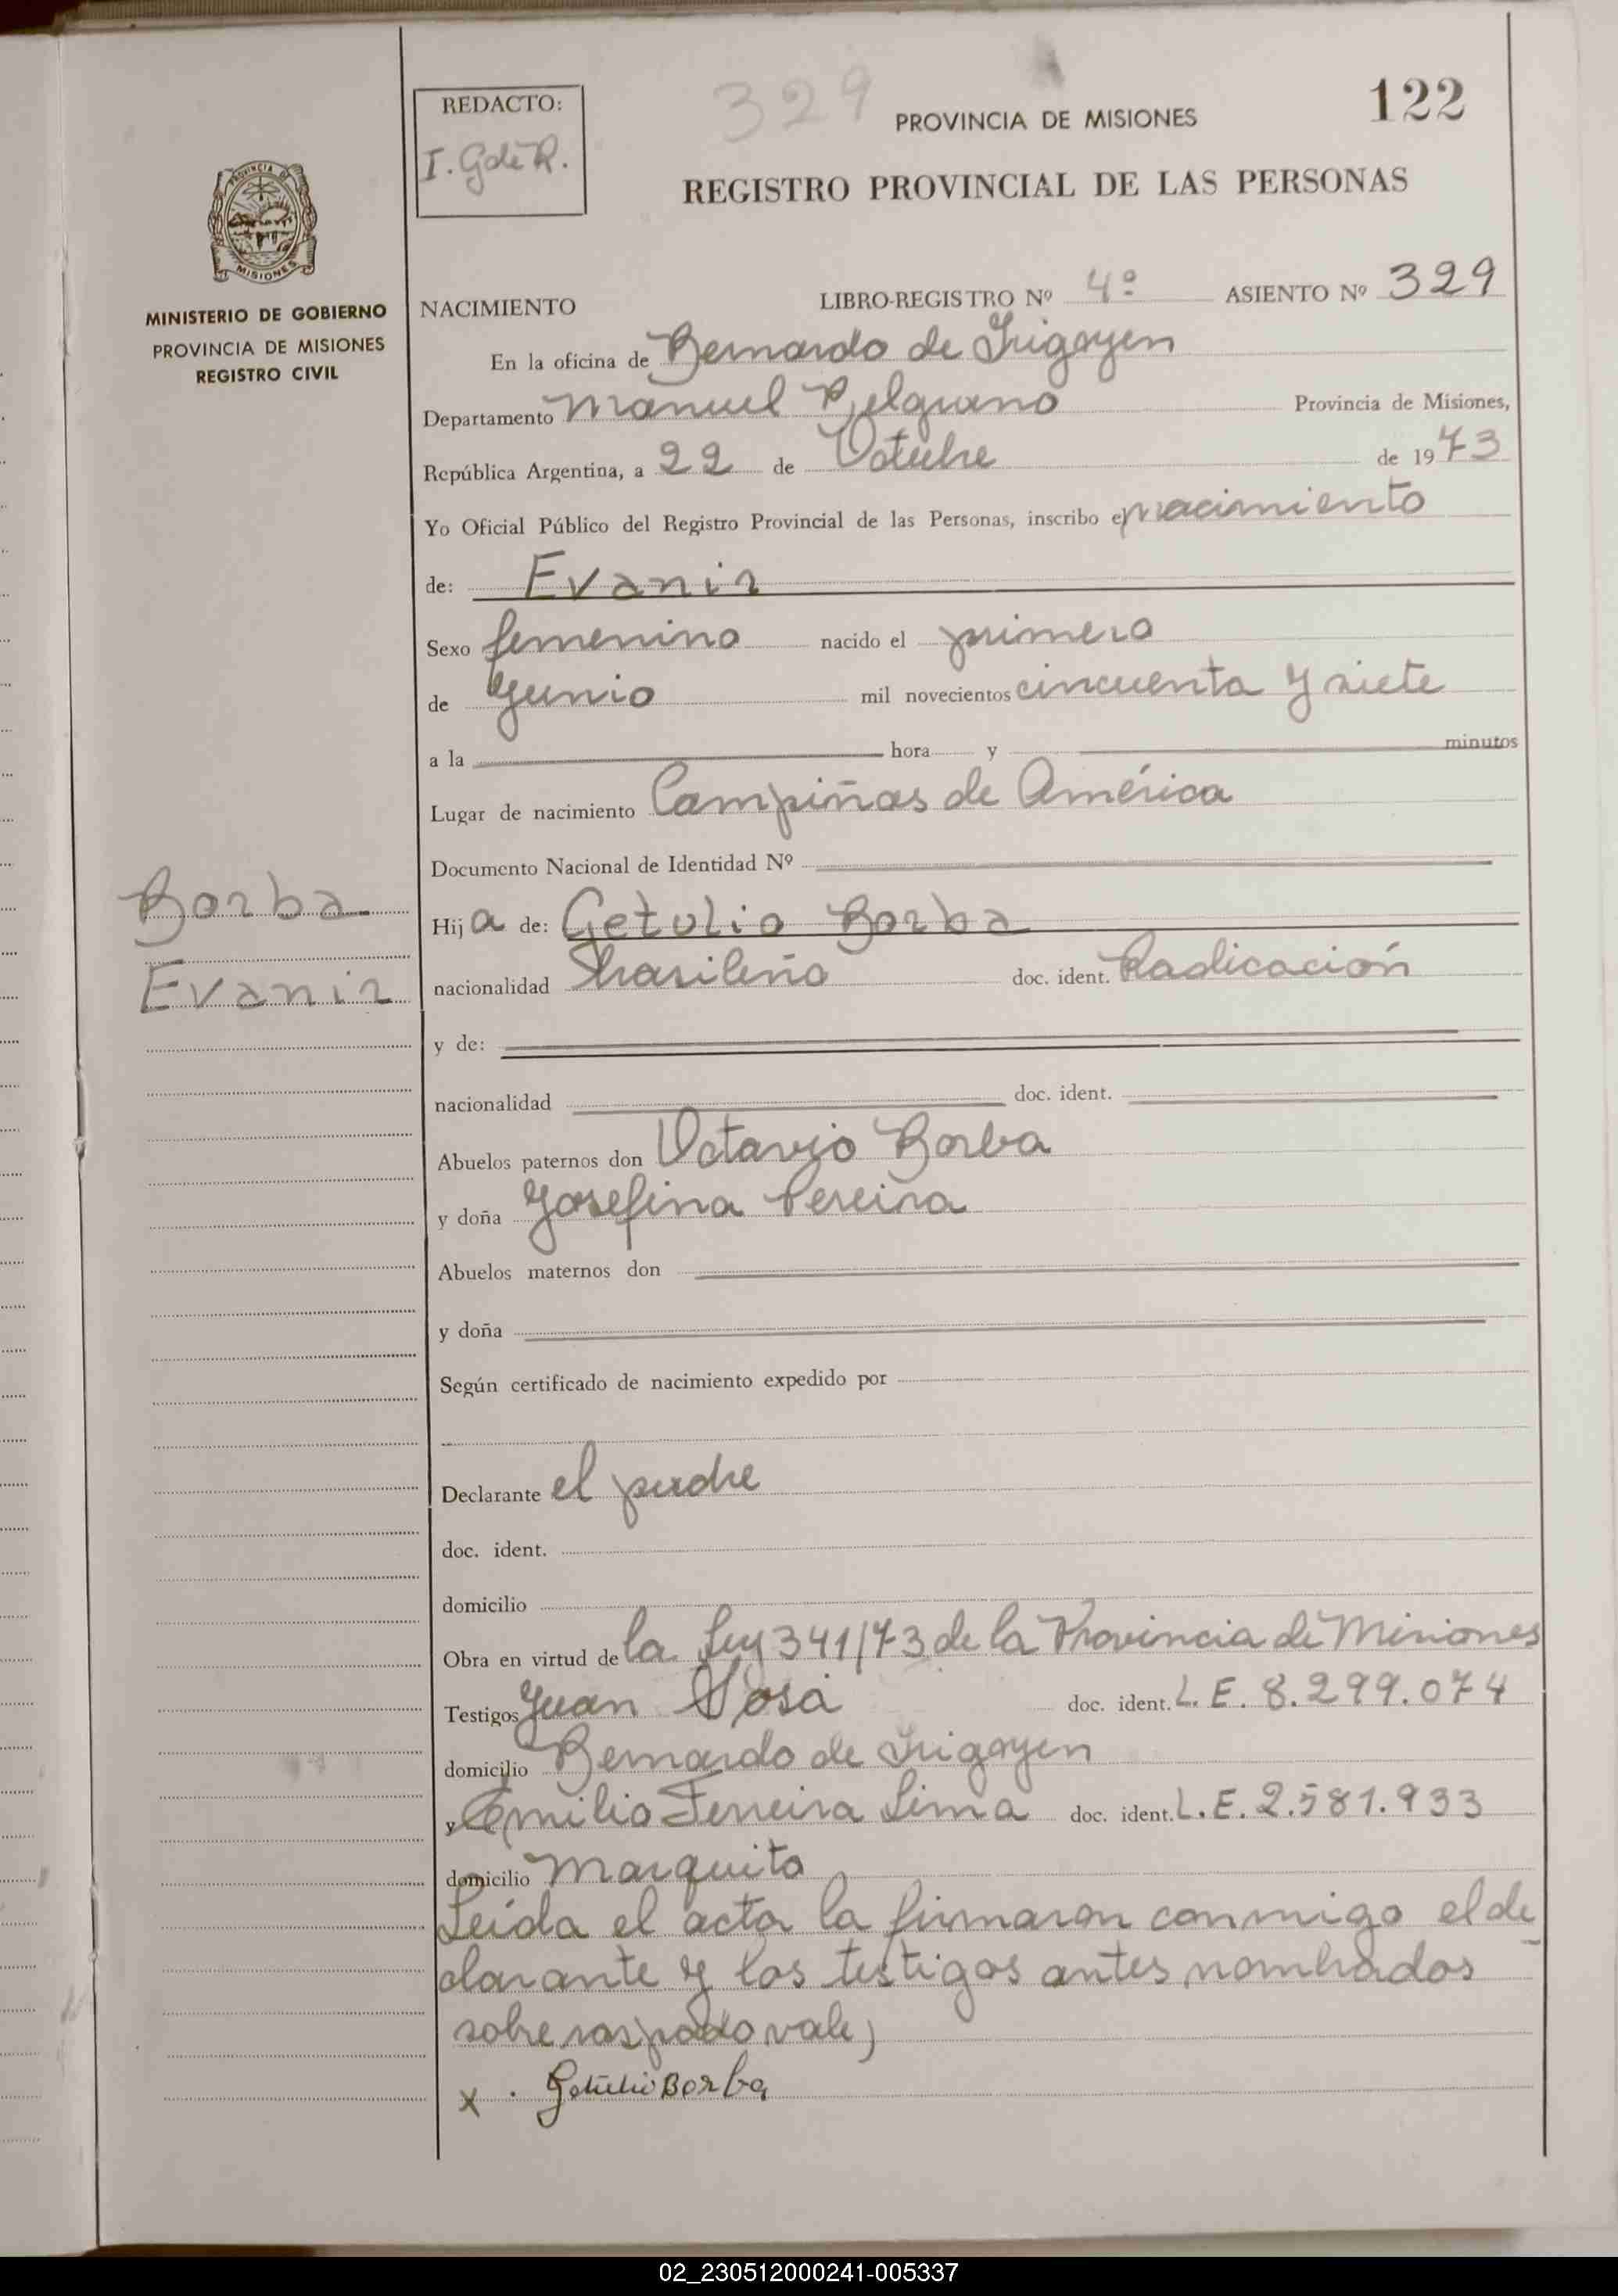 REDACTO:
I. G de R.
329
PROVINCIA DE MISIONES
122
REGISTRO PROVINCIAL DE LAS PERSONAS
PROVINCIA DE
MISIONES
MINISTERIO DE GOBIERNO
PROVINCIA DE MISIONES
REGISTRO CIVIL
NACIMIENTO LIBRO-REGISTRO Nº 4º ASIENTO Nº 329
En la oficina de Bernardo de Irigoyen
Departamento Manuel Belgrano Provincia de Misiones,
República Argentina, a 22 de Octubre de 1973
Yo Oficial Público del Registro Provincial de las Personas, inscribo el nacimiento
de: Evanir
Sexo femenino nacido el primero
de Junio mil novecientos cincuenta y siete
a la hora y minutos
Lugar de nacimiento Campiñas de América
Documento Nacional de Identidad Nº
Borba
Evanir
Hija de: Getulio Borba
nacionalidad brasileña doc. ident. Radicación
y de:
nacionalidad doc. ident.
Abuelos paternos don Octavio Borba
y doña Josefina Pereira
Abuelos maternos don
y doña
Según certificado de nacimiento expedido por
Declarante el padre
doc. ident.
domicilio
Obra en virtud de la Ley 341/73 de la Provincia de Misiones
Testigos Juan Sosa doc. ident. L.E. 8.299.074
domicilio Bernardo de Irigoyen
y Emilio Ferreira Lima doc. ident. L.E. 2.581.933
domicilio Marquita
Leída el acta la firmaron conmigo el de
clarante y los testigos antes nombrados
sobre raspado vale)
x . Getulio Borba
02_230512000241-005337